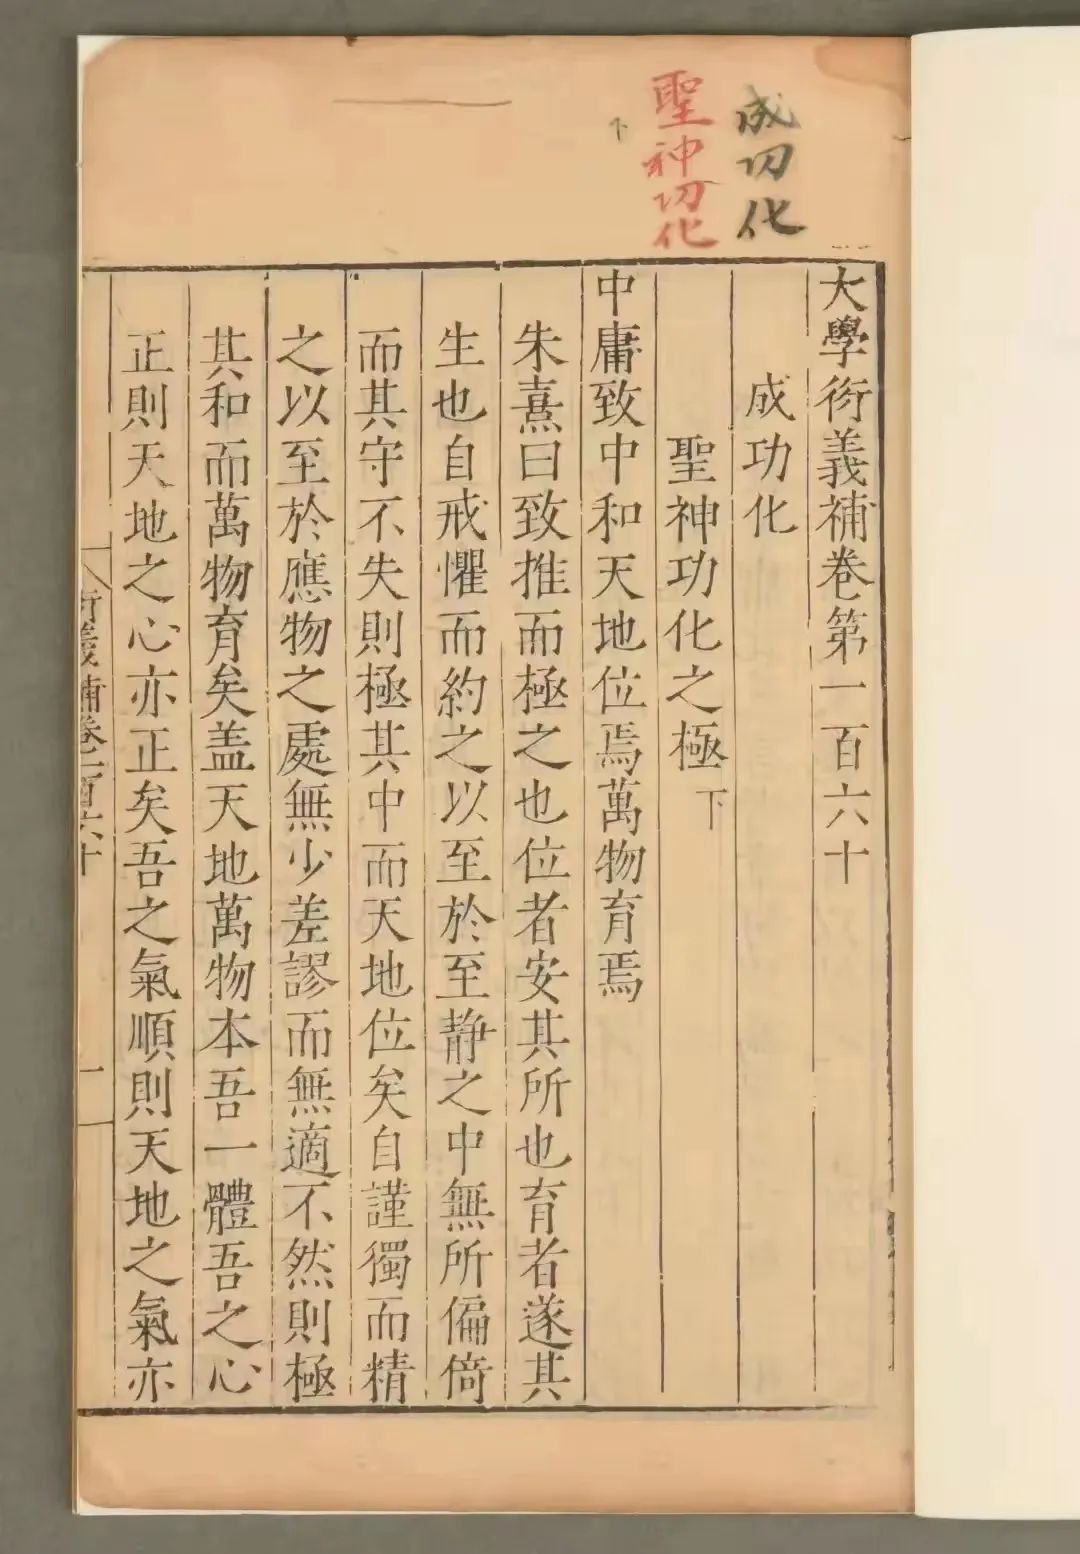 成功化
聖神功化
下
大學衍義補卷第一百六十
成功化
聖神功化之極下
中庸致中和天地位焉萬物育焉
朱熹曰致推而極之也位者安其所也育者遂其
生也自戒懼而約之以至於至靜之中無所偏倚
而其守不失則極其中而天地位矣自謹獨而精
之以至於應物之處無少差謬而無適不然則極
其和而萬物育矣盖天地萬物本吾一體吾之心
正則天地之心亦正矣吾之氣順則天地之氣亦
衍義補卷一百六十 一